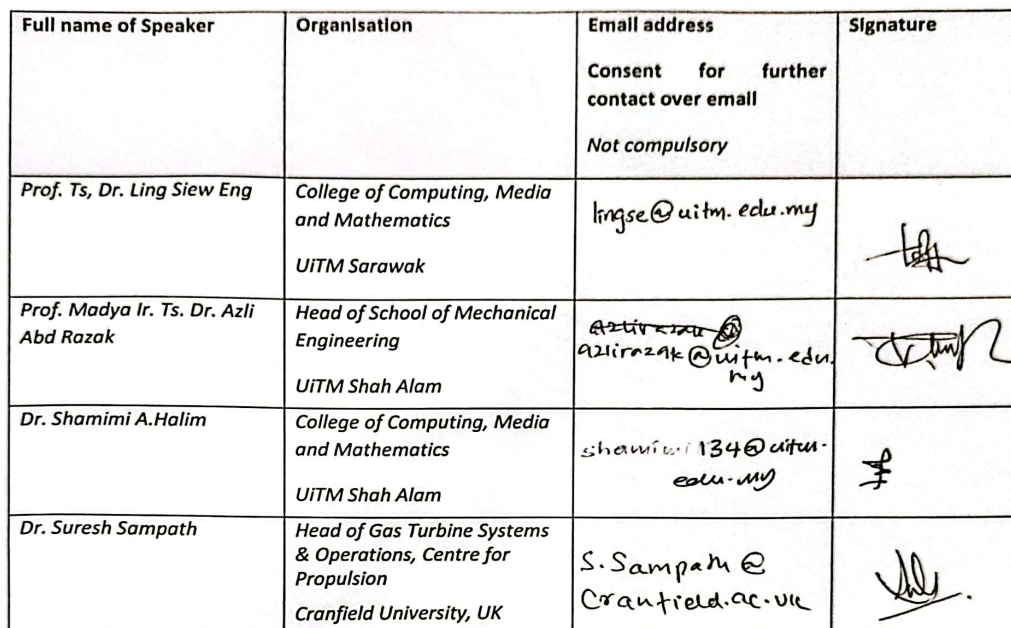 Full name of Speaker
Organisation
Email address
Consent for further
contact over email
Not compulsory
Signature
Prof. Ts, Dr. Ling Siew Eng
College of Computing, Media
and Mathematics
UiTM Sarawak
lingse@uitm.edu.my
Prof. Madya Ir. Ts. Dr. Azli
Abd Razak
Head of School of Mechanical
Engineering
UiTM Shah Alam
azlirazak@uitm.edu.
my
Dr. Shamimi A.Halim
College of Computing, Media
and Mathematics
UiTM Shah Alam
shamimi134@uitm.
edu.my
Dr. Suresh Sampath
Head of Gas Turbine Systems
& Operations, Centre for
Propulsion
Cranfield University, UK
S.Sampath@
Cranfield.ac.uk